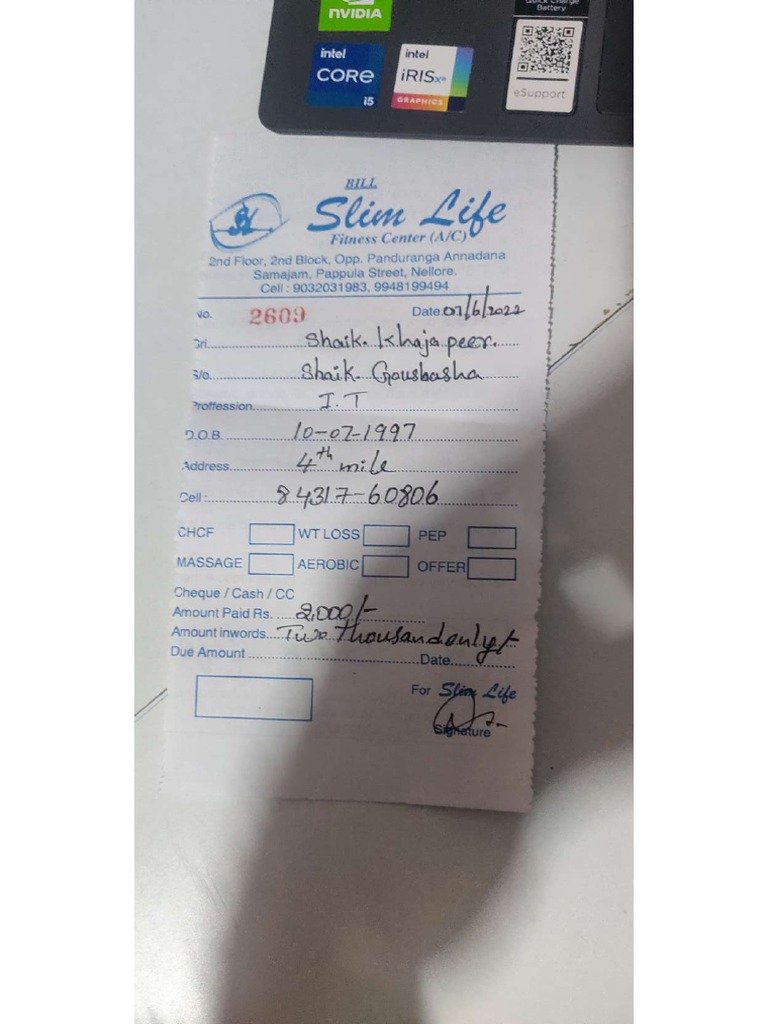 NVIDIA
Quick Charge
Battery
intel
CORE
i5
intel
iRISxe
GRAPHICS
eSupport
BILL
Slim Life
Fitness Center (A/C)
2nd Floor, 2nd Block, Opp. Panduranga Annadana
Samajam, Pappula Street, Nellore.
Cell : 9032031983, 9948199494
No. 2609 Date 07/6/2022
Sri. Shaik. Khaja peer.
S/o. Shaik. Gousbasha
Proffession. I.T
D.O.B. 10-07-1997
Address 4th mile
Cell : 84317-60806
CHCF WT LOSS PEP
MASSAGE AEROBIC OFFER
Cheque / Cash / CC
Amount Paid Rs. 2,000/-
Amount inwords. Two thousand only/-
Due Amount Date
For Slim Life
Signature